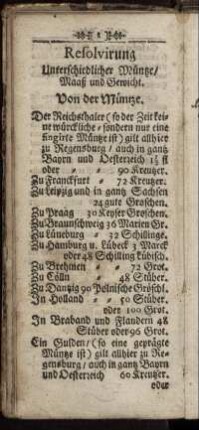 1
Resolvirung
Unterschiedlicher Müntze/
Maaß und Gewicht.
Von der Müntze.
Der Reichsthaler (so der Zeit kei-
ne würckliche- sondern nur eine
fingirte Müntze ist) gilt allhier
zu Regenspurg/ auch in gantz
Bayrn und Oesterreich 1½ fl
oder 90 Kreutzer.
Zu Franckfurt 72 Kreutzer.
Zu Leipzig und in gantz Sachsen
24 gute Groschen.
Zu Praag 30 Keyser Groschen.
Zu Braunschweig 36 Marien Gr.
Zu Lüneburg 32 Schillinge.
Zu Hamburg u. Lübeck 3 Marck
oder 48 Schilling Lübisch.
Zu Brehmen 72 Grot.
Zu Cölln 48 Stüber.
Zu Dantzig 90 Polnische Gröschl.
In Holland 50 Stüber.
oder 100 Grot.
In Braband und Flandern 48
Stüber oder 96 Grot.
Ein Gulden/ (so eine geprägte
Müntze ist) gilt allhier zu Re-
genspurg/ auch in gantz Bayrn
und Oesterreich 60 Kreutzer.
oder